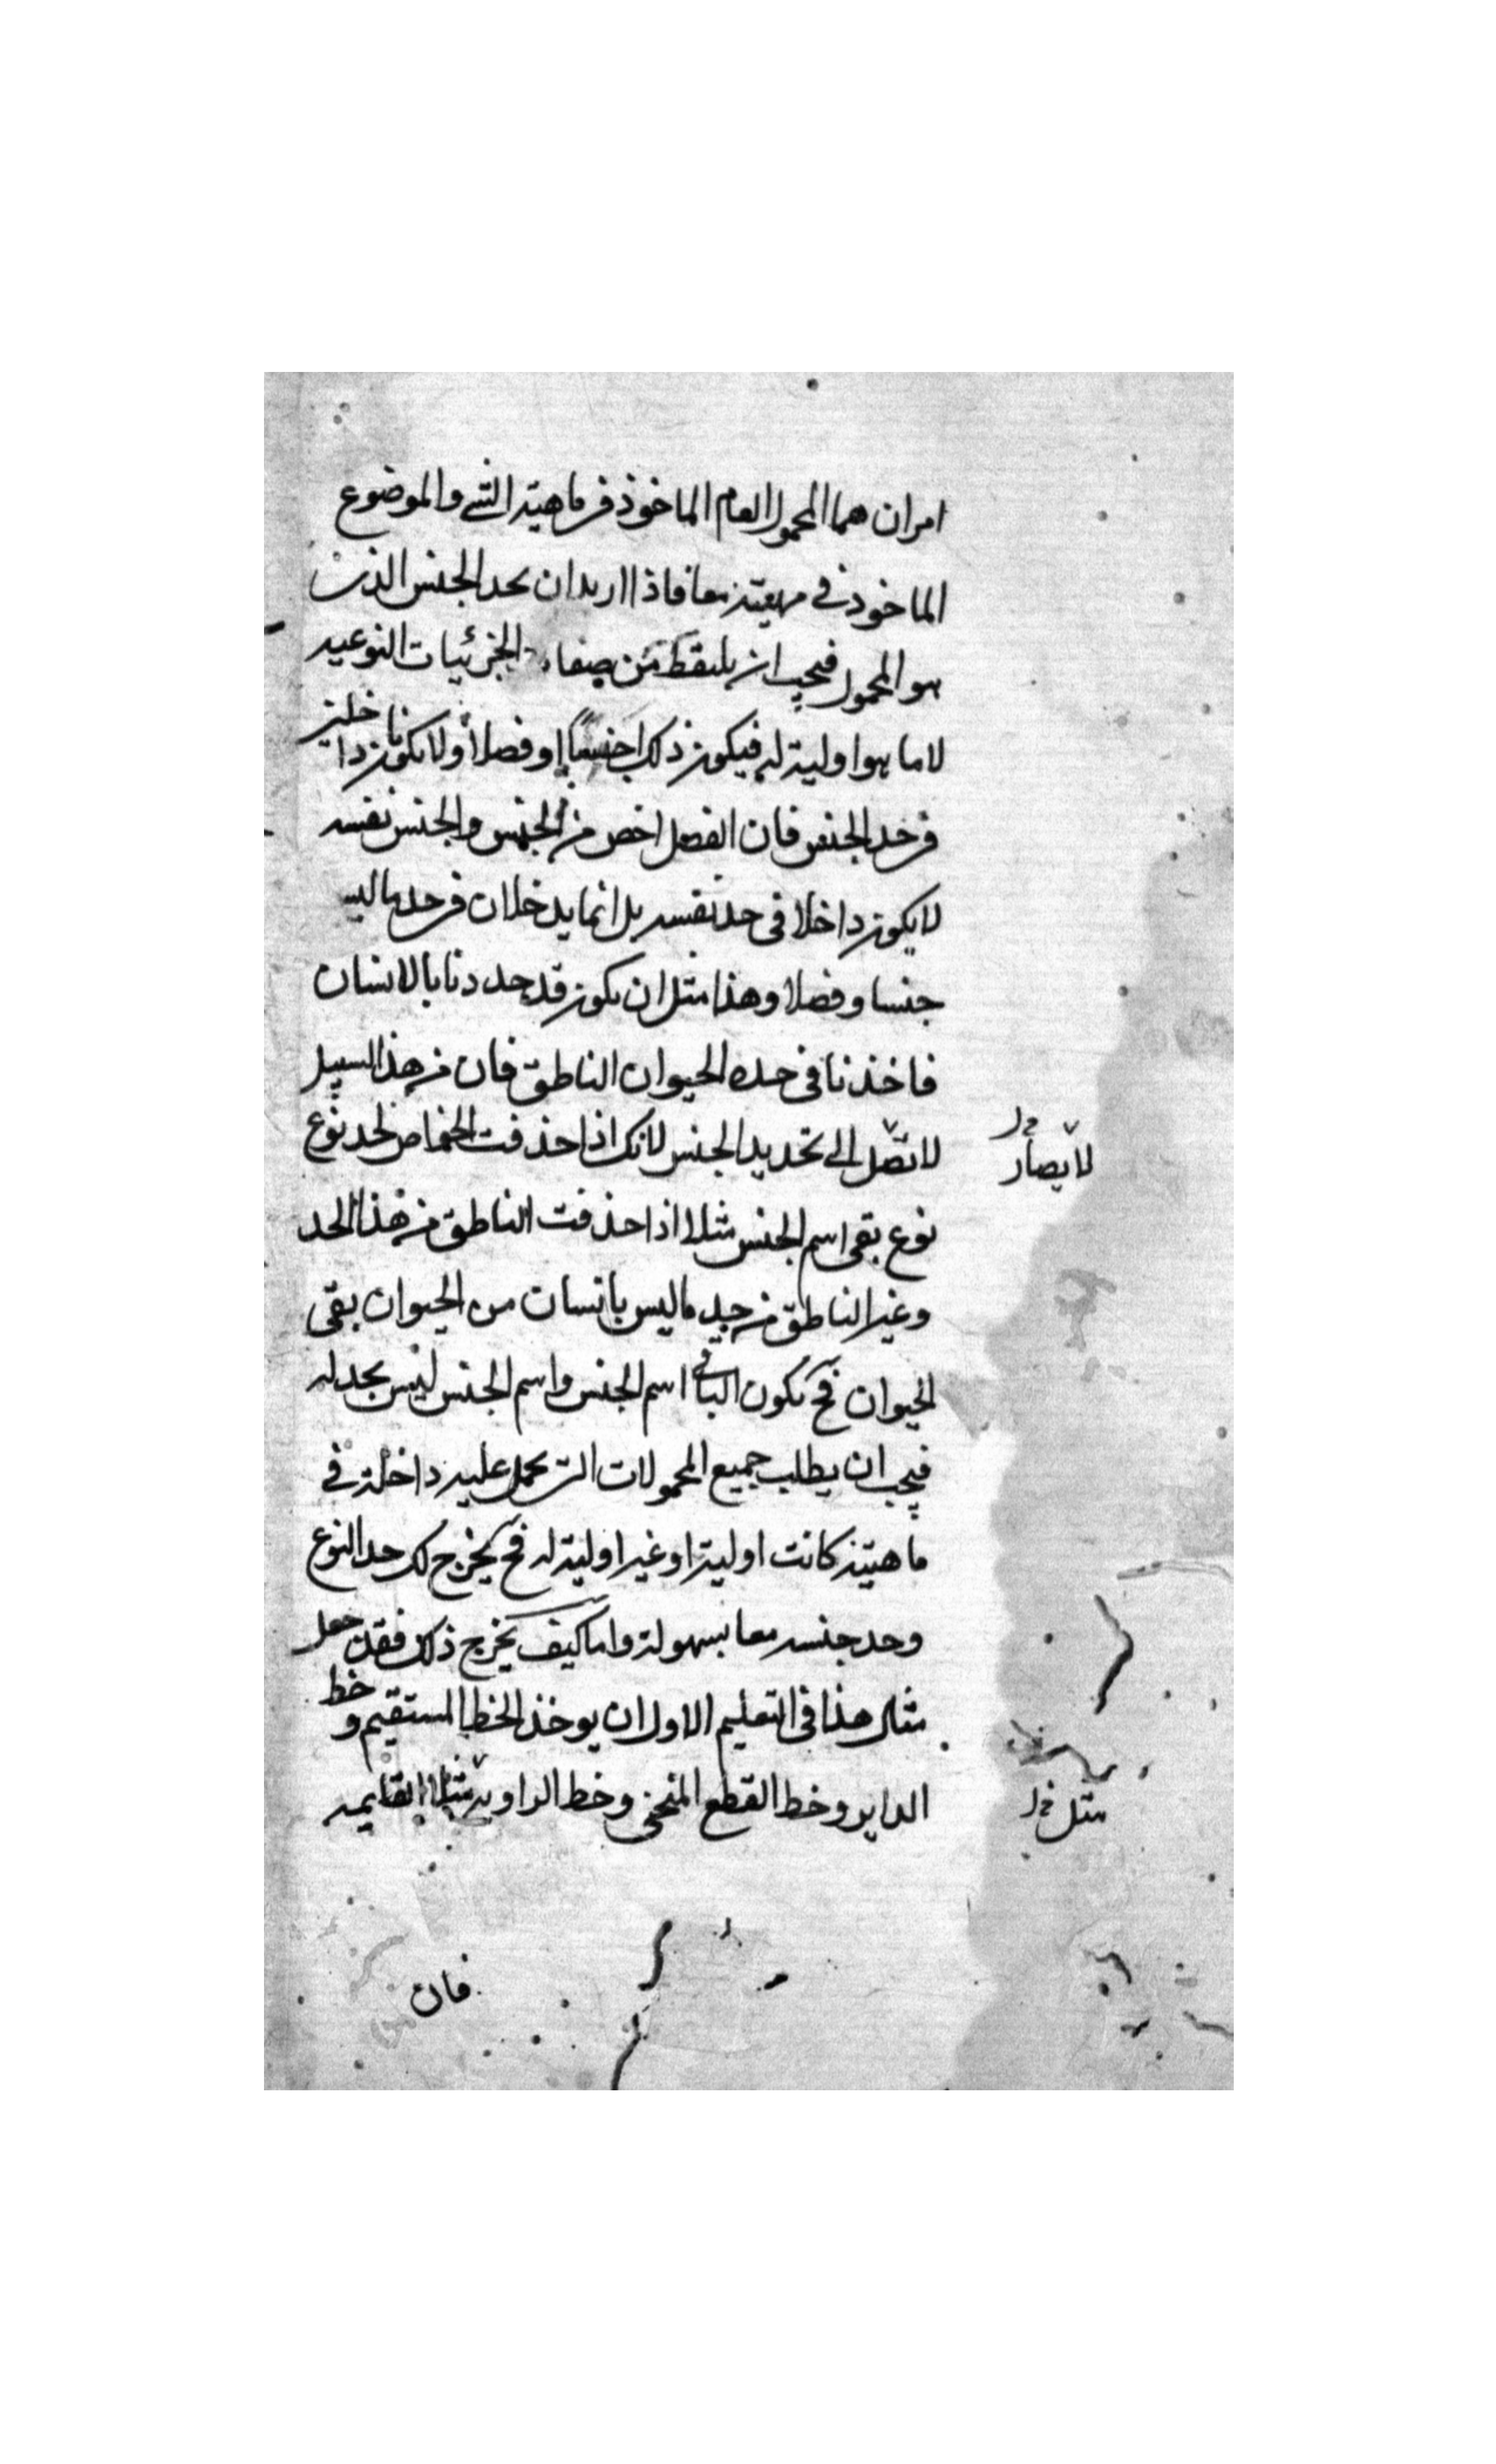 امران هما المحمول العام الماخوذ فى ماهية الشى والموضوع
الماخوذ فى مهيته معا فاذا اريد ان يحد الجنس الذى
هو المحمول فيجب ان يلتقط من صفات الجزئيات النوعيه
لا ما هو اولية له فيكون ذلك جنسا او فصلا ولا يكونان داخلين
فى حد الجنس فان الفصل اخص من الجنس والجنس نفسه
لا يكون داخلا فى حد نفسه بل انما يدخلان فى حد ما ليس
جنسا وفصلا وهذا مثل ان يكون قد حددنا بالانسان
فاخذنا فى حده الحيوان الناطق فان من هذا السبيل
لا نصل الى تحديد الجنس لانك اذا حذفت الخاص لحد نوع
نوع بقى اسم الجنس مثلا اذا حذفت الناطق من هذا الحد
وغير الناطق من حد ما ليس بانسان من الحيوان بقى
الحيوان فح يكون الباقى اسم الجنس واسم الجنس ليس بحد له
فيجب ان يطلب جميع المحمولات التى يحمل عليه داخلة فى
ماهيته كانت اولية او غير اولية له فح يخرج لك حد النوع
وحد جنسه معا بسهولة واما كيف يخرج ذلك فقد جعل
مثال هذا فى التعليم الاول ان يوخذ الخط المستقيم وخط
الدايره وخط القطع المنحنى وخط الزاوية مثلا القايمه
لا يصار
مثل
فان